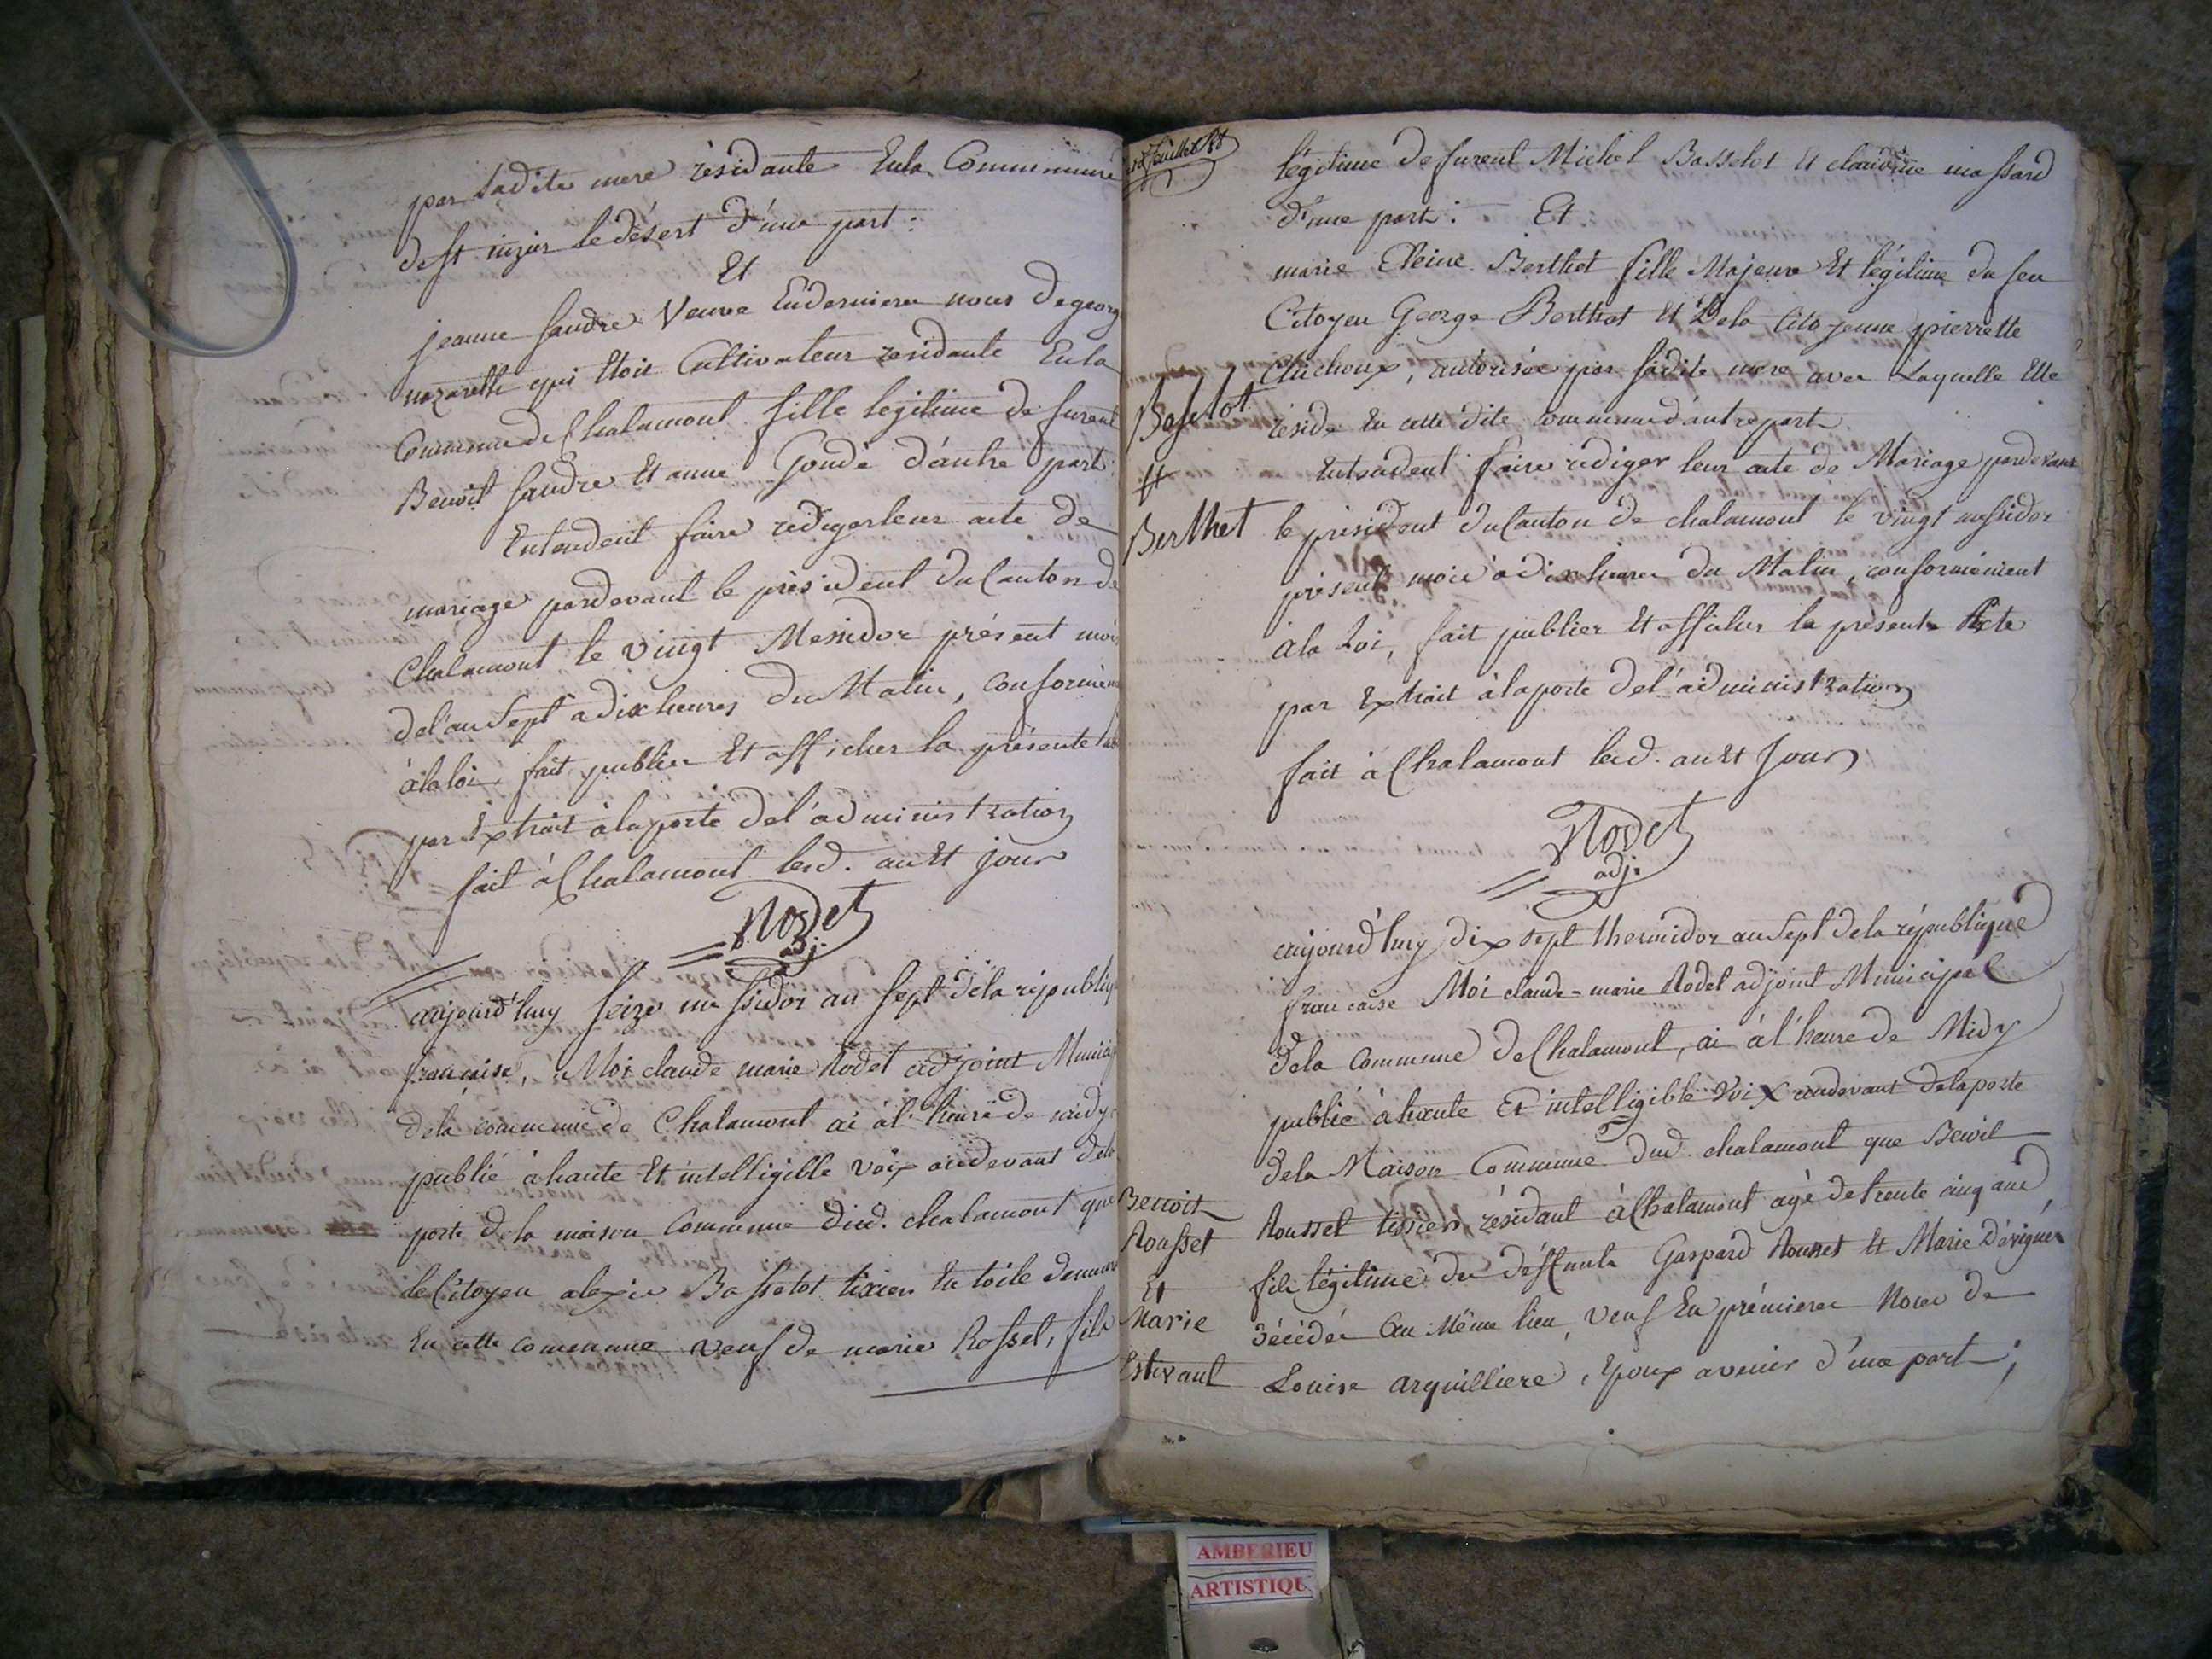 par Ladite mere résidante Enla Commune
dest nizier le désert d'une part:
Et
jeanne fandre Veuve Endernieres noces de george
nazareth qui Etoit Cultivateur residante Enla
Commune de Chalamont fille legitime de furent
Benoit fandre Et anne Goude d'autre part
Entendent faire rediger leur acte de
mariage pardevant le président du Canton de
Chalamont le vingt Messidor présent mois
del'an Sept a dix heures du Matin, conformém
à la loi fait publier Et afficher la présente
par Extrait à la porte del'administration
fait à Chalamont led. an Et jour
Rodet
adj.
aujourd'huy seize messidor an sept dela républiq
francaise, Moi claude marie Rodet adjoint Munici
dela commune de Chalamont ai à l'heure de midy
publié à haute Et intelligible voix audevant dela
porte dela maison Commune dud. chalamont que
le Citoyen alexis Basselot tixier En toile demeur
En cette commune veuf de marie Rosset, fils
légitime de furent Michel Basselot Et claudine massard
d'une part: Et
marie Reine Berthet fille Majeure Et légitime du feu
Citoyen George Berthet Et Dela Citoyenne pierrette
Chichoux, autorisée par sadite mere avec Laquelle Elle
réside En cette dite commune d'autre part
Basselot
Et
Berthet
Entendent faire rediger leur acte de Mariage pardevant
le président du Canton de chalamont le vingt messidor
présent mois à dix heures du Matin, conformément
à la Loi, fait publier Et afficher la présente Acte
par Extrait à la porte del'administration
fait à Chalamont led. an Et Jour
Rodet
adj.
aujourd'huy dix sept thermidor an Sept dela république
francaise Moi claude-marie Rodet adjoint Municipal
dela Commune de Chalamont, ai à l'heure de Midy
publié à haute Et intelligible voix audevant delaporte
dela Maison Commune dud. chalamont que Benoit
Benoit
Rousset
Et
Marie
Estevant
Rousset tissier, résidant à Chalamont agé de trente cinq ans
fils légitime de deffunts Gaspard Rousset Et Marie
décédés au Même lieu, veuf En premieres Noces de
Louise arquilliere, Epoux avenir d'une part;